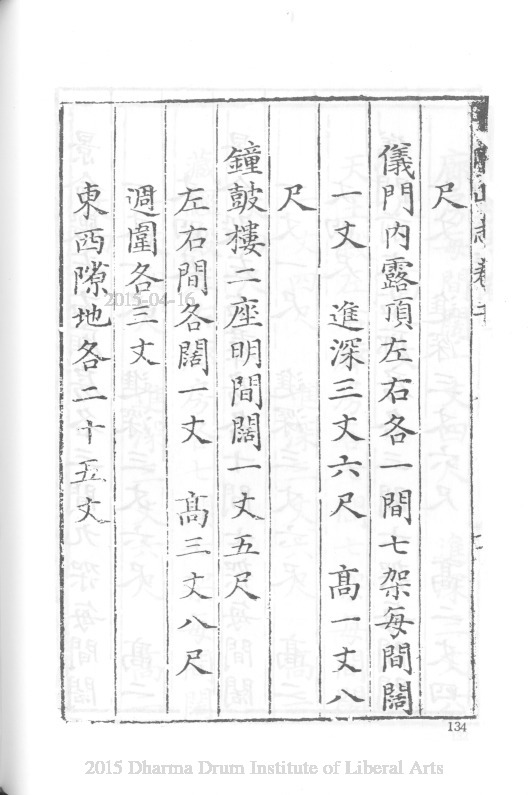 山志卷
尺
儀門內露頂左右各一間七架每間闊
一丈　進深三丈六尺　高一丈八
尺
鐘鼓樓二座明間闊一丈五尺
左右間各闊一丈　高三丈八尺
週圍各三丈
東西隙地各二十五丈
2015-04-16
134
2015 Dharma Drum Institute of Liberal Arts